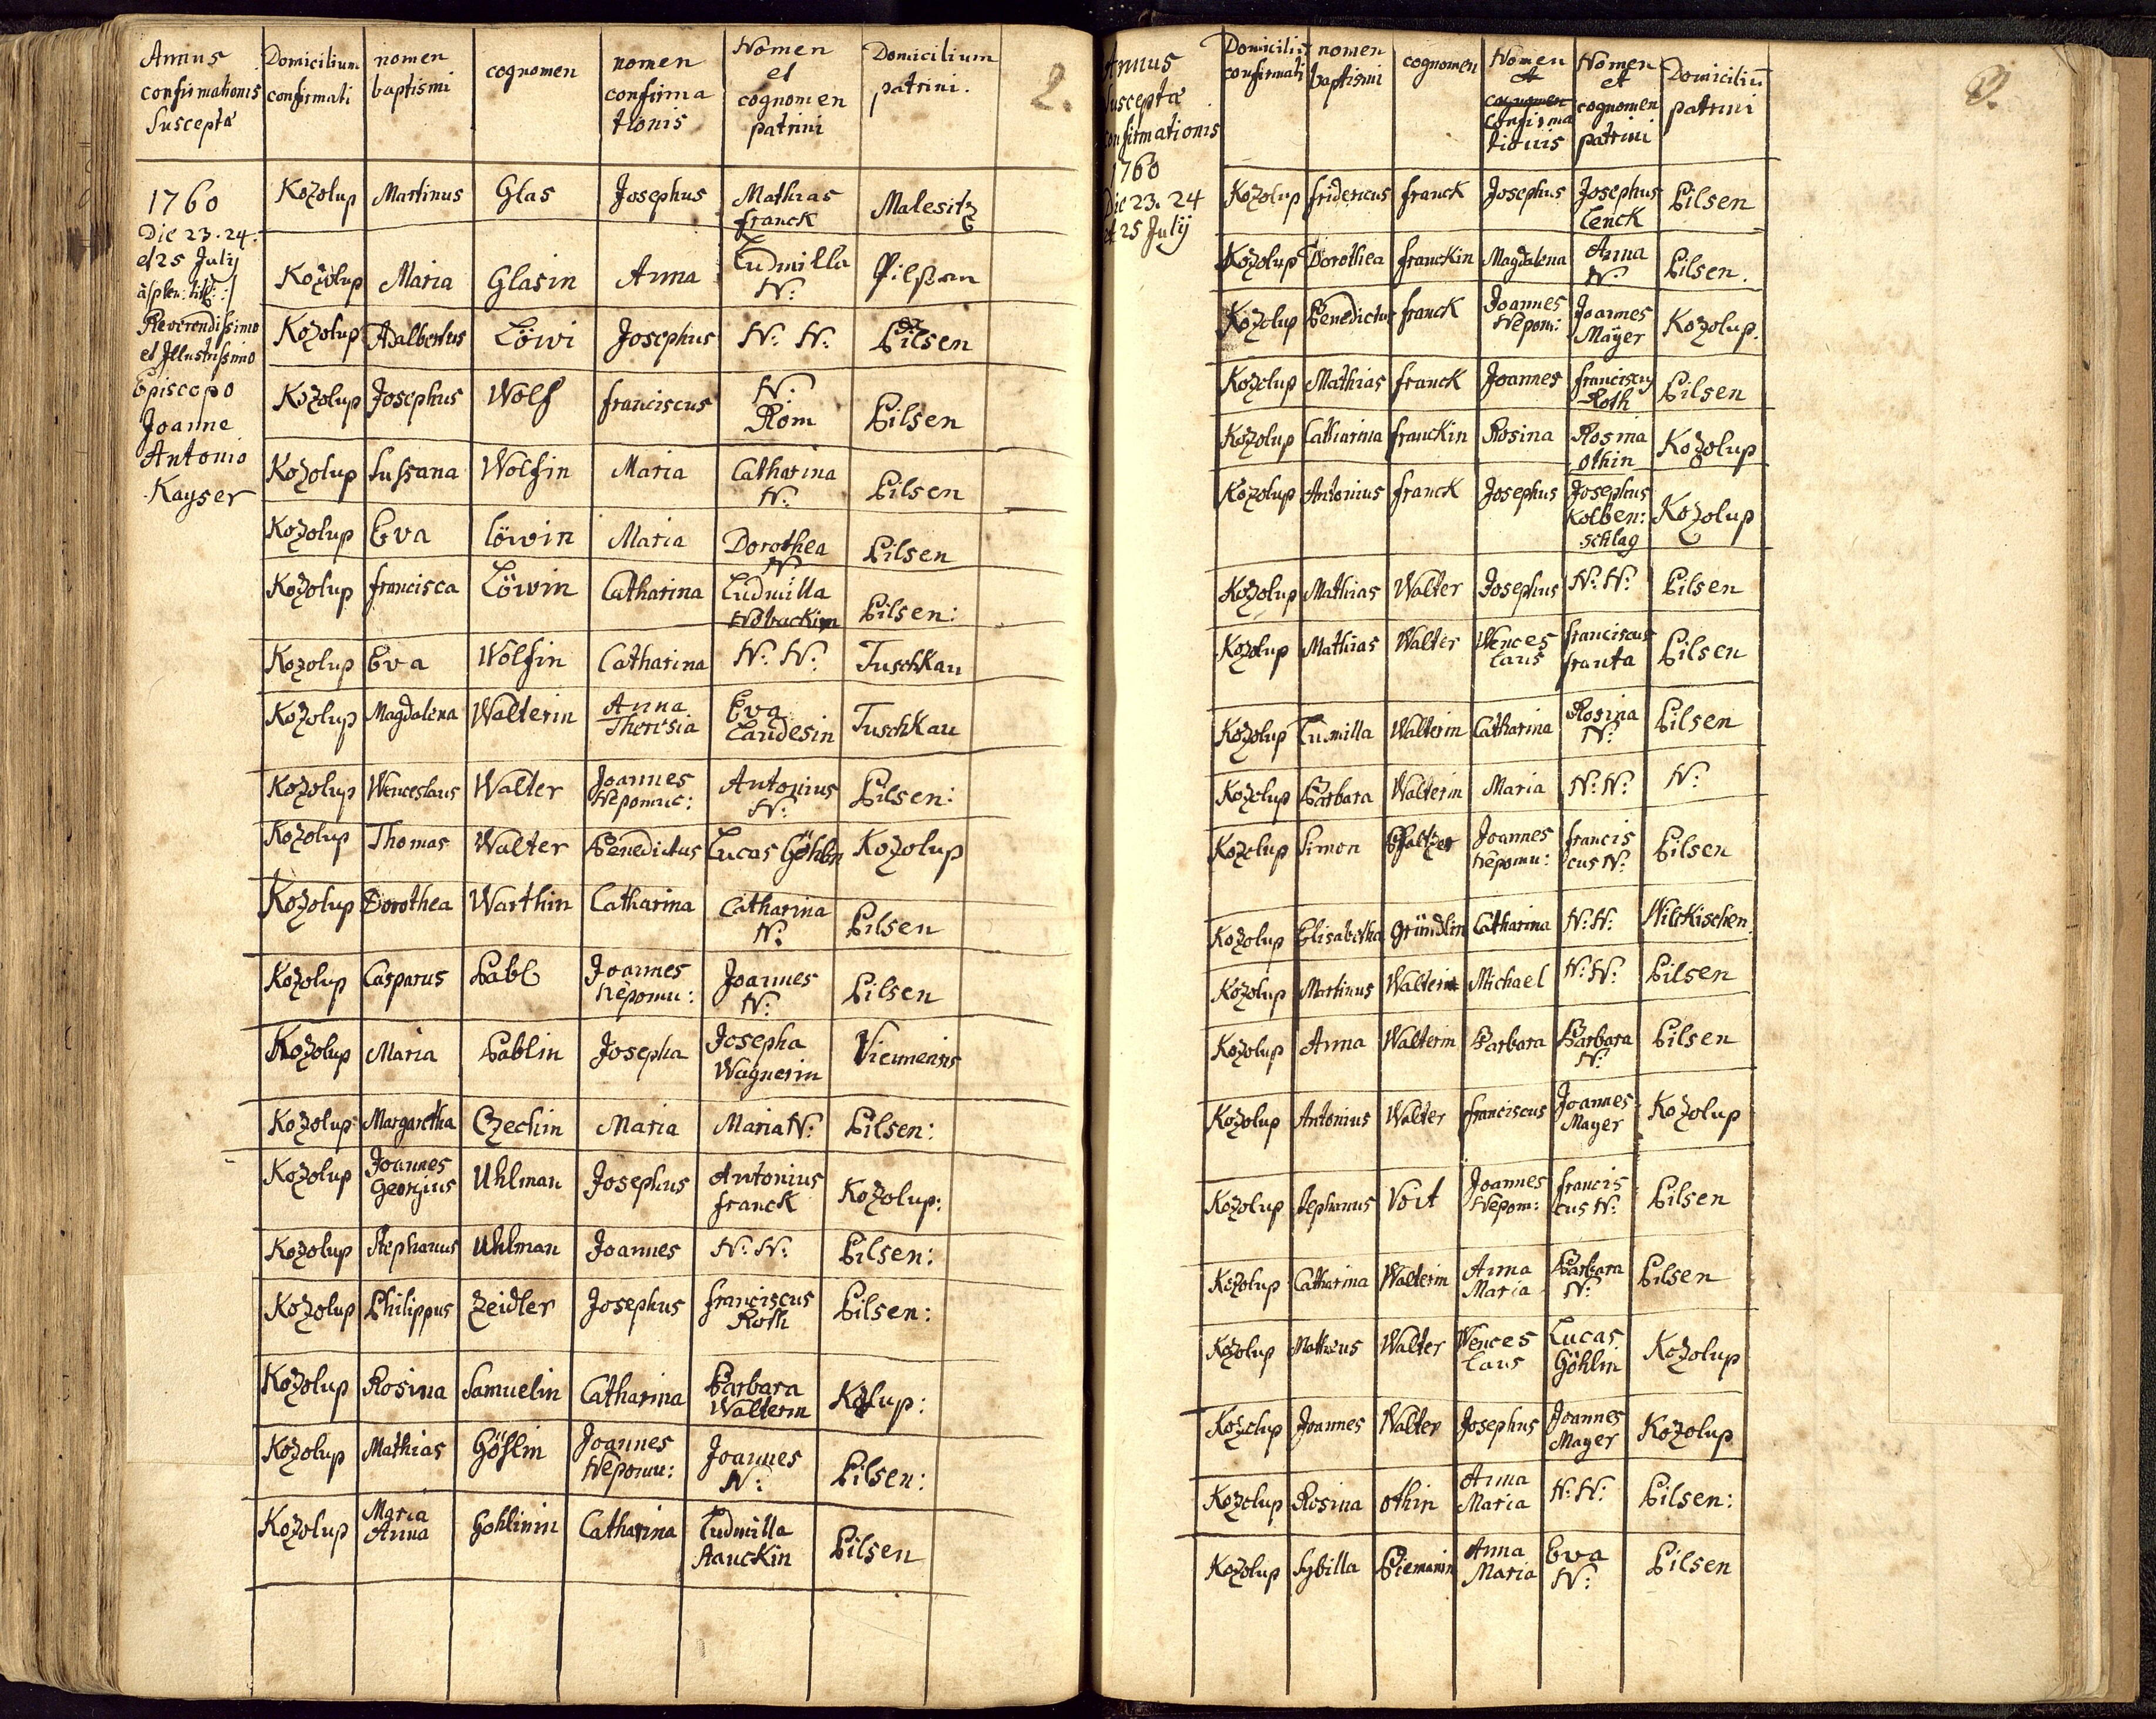 Annus confirmationis Susceptæ | Domicilium confirmati | nomen baptismi | cognomen | nomen confirma tionis | Nomen et cognomen patrini | Domicilium patrini.
2.
1760
Die 23. 24.
et 25 Julij
Reverendissimo
et Illustrissimo
Episcopo
Joanne
Antonio
Kayser
Kozolup Martinus Glas Josephus Mathias franck Malesitz
Kozolup Maria Glasin Anna Ludmilla N: Pilsen
Kozolup Adalbertus Löwi Josephus N: N: Pilsen
Kozolup Josephus Wolf franciscus N: Rom Pilsen
Kozolup Sussana Wolfin Maria Catharina N: Pilsen
Kozolup Eva Löwin Maria Dorothea N: Pilsen
Kozolup francisca Löwin Catharina Ludmilla Pilsen:
Kozolup Eva Wolfin Catharina N: N: Tuschkau
Kozolup Magdalena Walterin Anna Theresia Eva Landesin Tuschkau
Kozolup Wenceslaus Walter Joannes Nepomuc: Antonius N: Pilsen:
Kozolup Thomas Walter Benedictus Lucas Göhln Kozolup
Kozolup Dorothea Warthin Catharina Catharina N: Pilsen
Kozolup Casparus Pabl Joannes Nepomu: Joannes N: Pilsen
Kozolup Maria Pablin Josepha Josepha Wagnerin Viennensis
Kozolup Margaretha Czechin Maria Maria N: Pilsen:
Kozolup Joannes Georgius Uhlman Josephus Antonius franck Kozolup:
Kozolup Stephanus Uhlman Joannes N: N: Pilsen:
Kozolup Philippus Zeidler Josephus franciscus Roth Pilsen:
Kozolup Rosina Samuelin Catharina Barbara Walterin Kozlup:
Kozolup Mathias Göhlin Joannes Nepomu: Joannes N: Pilsen:
Kozolup Maria Anna Gohlinin Catharina Ludmilla Pilsen
Annus Susceptæ confirmationis | Domiciliū confirmati | nomen baptismi | cognomen | Nomen et cognomen Confirma tionis | Nomen et cognomen patrini | Domiciliū patrini
1760
Die 23. 24
et 25 Julij
Kozolup fridericus franck Josephus Josephus Lenck Pilsen
Kozolup Dorothea franckin Magdalena Anna N: Pilsen.
Kozolup Benedictus franck Joannes Nepom: Joannes Mayer Kozolup.
Kozolup Mathias franck Joannes franciscus Roth Pilsen
Kozolup Catharina franckin Rosina Rosina othin Kozolup
Kozolup Antonius franck Josephus Josephus Kolben: schlag Kozolup
Kozolup Mathias Walter Josephus N: N: Pilsen
Kozolup Mathias Walter Wences laus franciscus franta Pilsen
Kozolup Lumilla Walterin Catharina Rosina N: Pilsen
Kozolup Barbara Walterin Maria N: N: N:
Kozolup Simon Joannes Nepomu: francis cus N: Pilsen
Kozolup Elisabetha Gründlin Catharina N: N: Wilckischen
Kozolup Martinus Walter Michael N: N: Pilsen
Kozolup Anna Walterin Barbara Barbara N: Pilsen
Kozolup Antonius Walter franciscus Joannes Mayer Kozolup
Kozolup Stephanus Voit Joannes Nepom: francis cus N: Pilsen
Kozolup Catharina Walterin Anna Maria Barbara N: Pilsen
Kozolup Mathæus Walter Wences laus Lucas Göhlin Kozolup
Kozolup Joannes Walter Josephus Joannes Mayer Kozolup
Kozolup Rosina othin Anna Maria N: N: Pilsen:
Kozolup Sybilla Piemanin Anna Maria Eva N: Pilsen